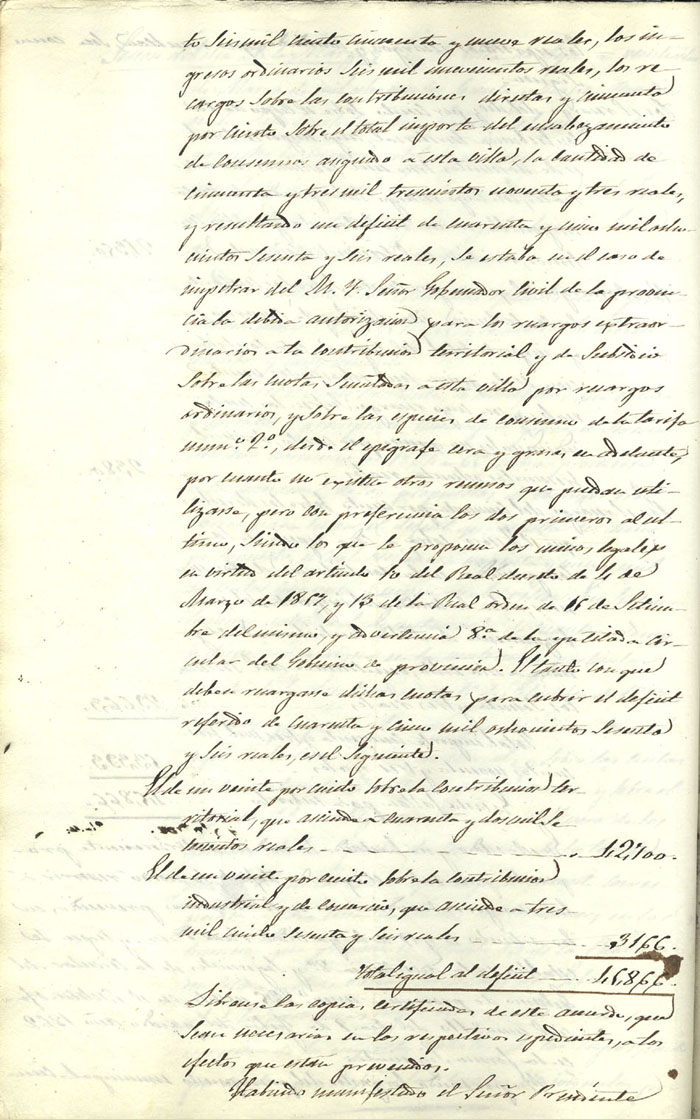 to seis mil ciento cincuenta y nueve reales, los in-
gresos ordinarios seis mil novecientos reales, los re
cargos sobre las contribuciones directas y cincuenta
por ciento sobre el total importe del encabezamiento
de consumos asignado a esta villa, la cantidad de
cincuenta y tres mil trescientos noventa y tres reales,
y resultando un deficit de cuarenta y cinco mil ocho-
cientos sesenta y seis reales, se estaba en el caso de
impetrar del M. Y. Señor Gobernador Civil de la provin-
cia la debida autorizacion para los recargos extraor-
dinarios a la contribucion territorial y de subsidio
sobre las cuotas señaladas a esta villa por recargos
ordinarios, y sobre las especies de consumo de la tarifa
num.º 2.º, desde el epigrafe cera y grasas en adelante,
por cuanto no existen otros recursos que puedan uti-
lizarse, pero con preferencia los dos primeros al ul-
timo, siendo los que se proponen los unicos legales
en virtud del articulo 10 del Real decreto de 4 de
Marzo de 1857, y 13 de la Real orden de 15 de Setiem-
bre del mismo, y advertencia 8.ª de la ya citada cir-
cular del Gobierno de provincia. El tanto con que
deben recargarse dichas cuotas para cubrir el deficit
referido de cuarenta y cinco mil ochocientos sesenta
y seis reales, es el siguiente.
El de un veinte por ciento sobre la contribucion ter-
ritorial, que asciende a cuarenta y dos mil se
tecientos reales 42,700.
El de un veinte por ciento sobre la contribucion
industrial y de comercio, que asciende a tres
mil ciento sesenta y seis reales 3166.
Total igual al deficit 45,866.
Librense las copias certificadas de este acuerdo, que
sean necesarias en los respectivos espedientes, a los
efectos que estan prevenidos.
Habiendo manifestado el Señor Presidente